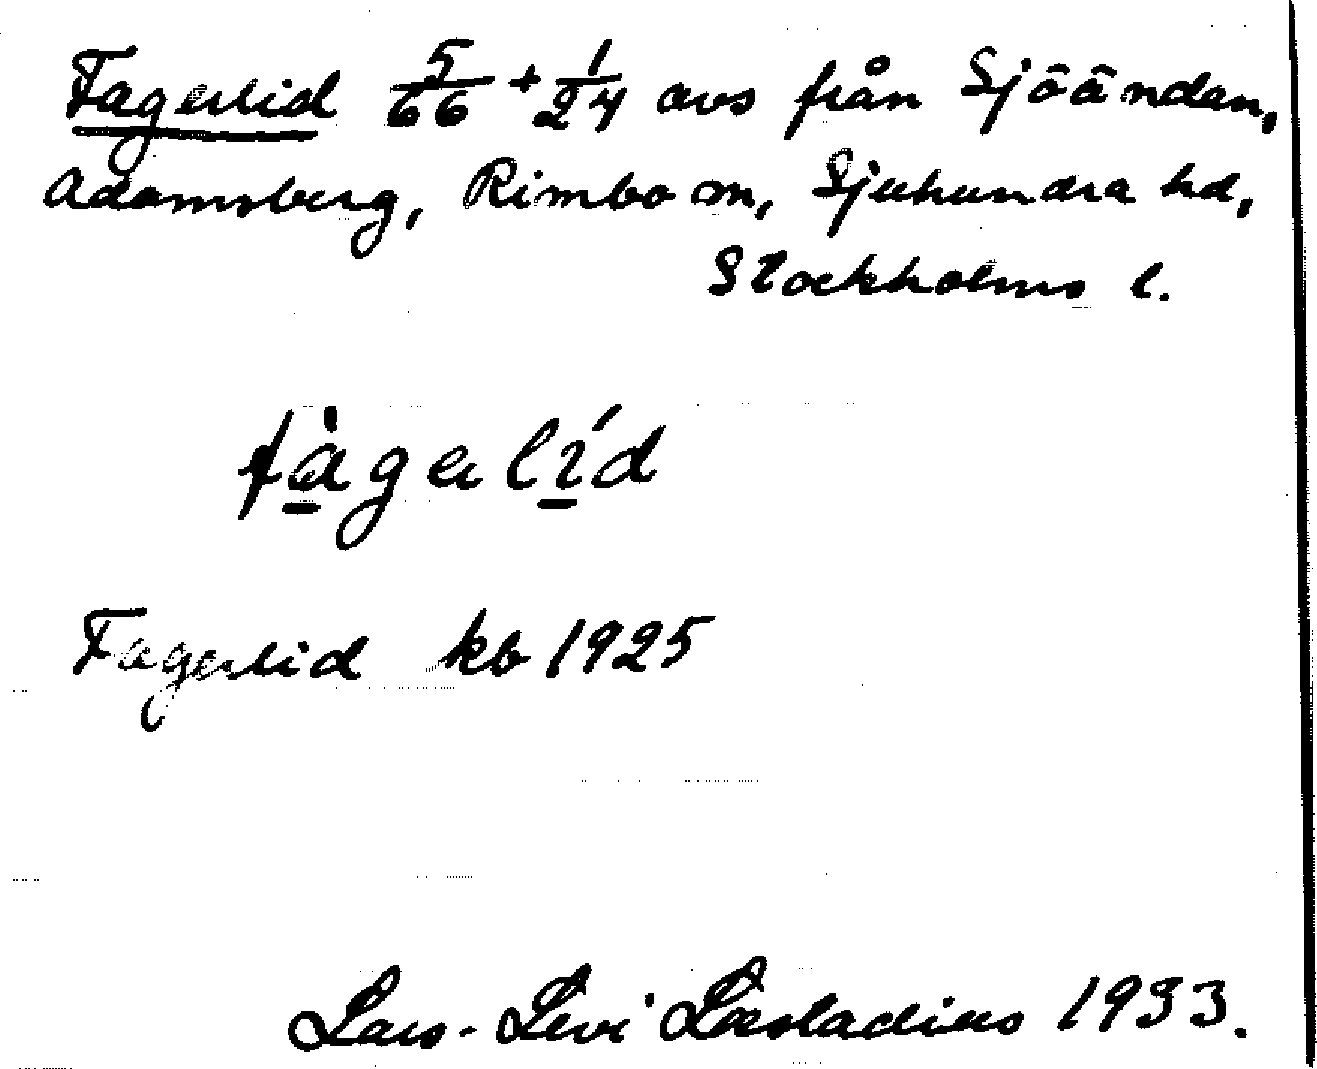 Fagerlid 5/66 + 1/24 avs från Sjöändan,
Adamsberg, Rimbo sn, Sjuhundra hd,
Stockholms l.
fàgerlíd
Fagerlid kb 1925
Lars-Levi Læstadius 1933.